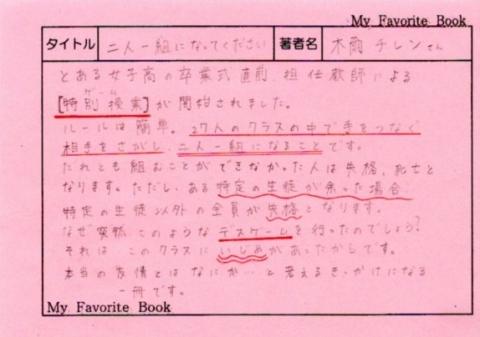 My Favorite Book
タイトル 二人一組になってください 著者名 木爾 チレンさん
とある女子高の卒業式直前、担任教師による
【特別授業】が開始されました。
ゲーム
ルールは簡単。27人のクラスの中で手をつなぐ
相手をさがし、二人一組になることです。
だれとも組むことができなかった人は失格、死亡と
なります。ただし、ある特定の生徒が余った場合、
特定の生徒以外の全員が失格となります。
なぜ突然、このようなデスゲームを行ったのでしょう?
それは、このクラスにいじめがあったからです。
本当の友情とはなにか…と考えるきっかけになる
一冊です。
My Favorite Book